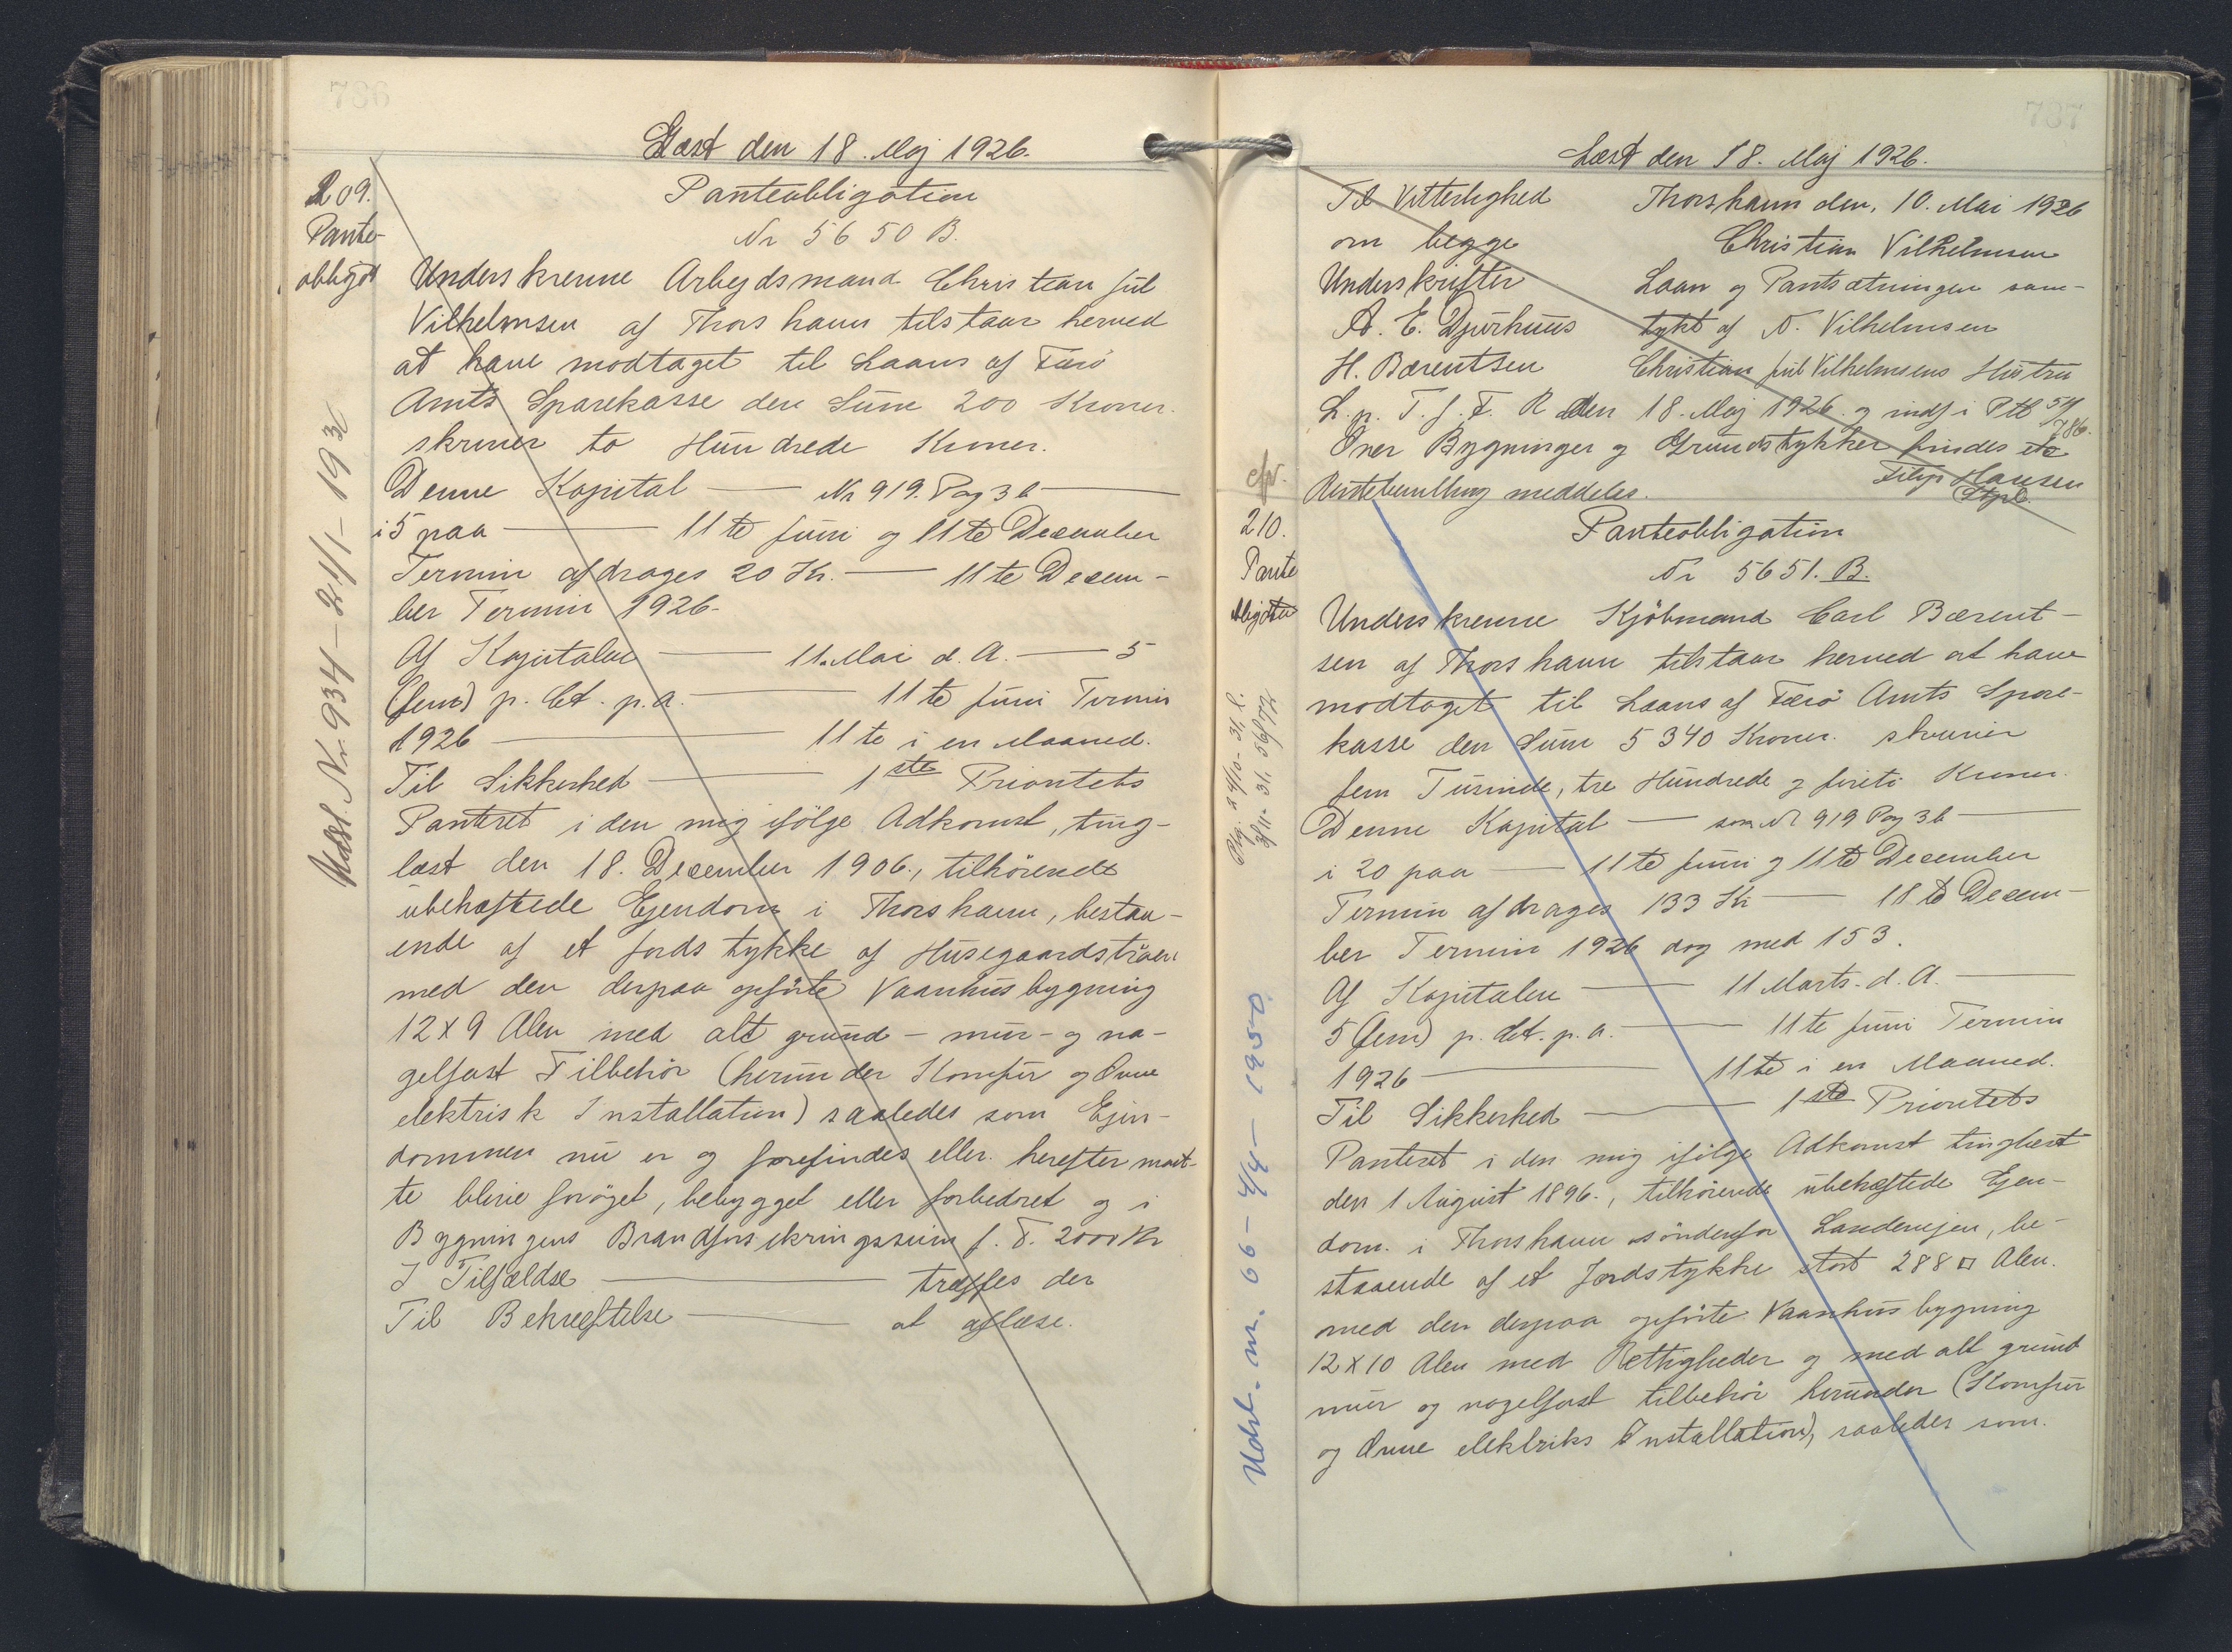 786
Læst den 18. Maj 1926.
209.
Pante-
obligat
Panteobligation
Nr 5650 B.
Underskrevne Arbejdsmand Christian Jul
Vilhelmsen af Thorshavn tilstaar herved
at have modtaget til Laans af Færö
Amts Sparekasse den Sum 200 Kroner.
skriver to Hundrede Kroner.
Denne Kapital — Nr 919. Pag 36 —
i 5 paa — 11te Juni og 11te December
Termin afdrages 20 Kr. — 11te Decem-
ber Termin 1926.
Af Kapitalen — 11. Mai d. A. — 5
(fem) p. Ct. p. a. — 11te Juni Termin
1926 — 11te i en Maaned.
Til Sikkerhed — 1ste Prioritets
Panteret i den mig ifölge Adkomst, ting-
læst den 18. December 1906., tilhörende
ubehæftede Ejendom i Thorshavn, bestaa-
ende af et Jordstykke af Husegaardströen
med den derpaa opförte Vaanhusbygning
12 x 9 Alen med alt grund- mur- og na-
gelfast Tilbehör (herunder Komfur og Ovne
elektrisk Installation) saaledes som Ejen-
dommen nu er og forefindes eller herefter maat-
te blive foröget, bebygget eller forbedret og i
Bygningens Brandforsikringssum f. T. 2000 Kr
I Tilfælde — træffes der
Til Bekræftelse — at aflæse.
Udsl. Nr. 934 – 21/1 – 193
787
Læst den 18. Maj 1926.
Til Vitterlighed Thorshavn den, 10. Mai 1926
om begge Christian Vilhelmsen
Underskrifter Laan og Pantsætningen sam-
A. E. Djurhuus tykt af N. Vilhelmsen
H. Bærentsen Christian Jul Vilhelmsens Hustru
L. p. T. f. F. R den 18. Maj 1926. og indf i Ptb 54/786.
Over Bygninger og Grundstykker findes etc
Rentebevilling meddeles. Filip Hansen
210.
Pante
obligation
Panteobligation
Nr 5651. B.
Underskrevne Kjöbmand Carl Bærent-
sen af Thorshavn tilstaar herved at have
modtaget til Laans af Færö Amts Spare-
kasse den Sum 5340 Kroner. skriver
fem Tusinde, tre Hundrede og fireti Kroner.
Denne Kapital — som Nr 919 Pag 36 —
i 20 paa — 11te Juni og 11te December
Termin afdrages 133 Kr — 11te Decem-
ber Termin 1926 dog med 153.
Af Kapitalen — 11 Marts. d. A. —
5 (fem) p. Ct. p. a. — 11te Juni Termin
1926 — 11te i en Maaned.
Til Sikkerhed — 1ste Prioritets
Panteret i den mig ifölge Adkomst tinglæst
den 1 August 1896., tilhörende ubehæftede Ejen-
dom. i Thorshavn söndenfor Landevejen, be-
staaende af et Jordstykke stort 288 □ Alen.
med den derpaa opförte Vaanhusbygning
12 x 10 Alen med Rettigheder og med alt grund
mur og nagelfast tilbehör herunder (Komfur
og Ovne elektriks Installation), saaledes som.
Udsl. nr. 66 – 4/4 – 1950